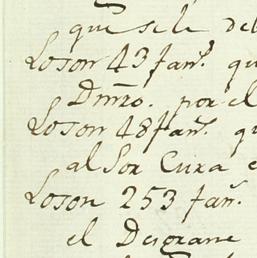 que se le de
Loson 43 fan.s qu
Dmro. por el
Loson 48 fan.s q
al Sor Cura e
Loson 253 fan.s
el Desgrane